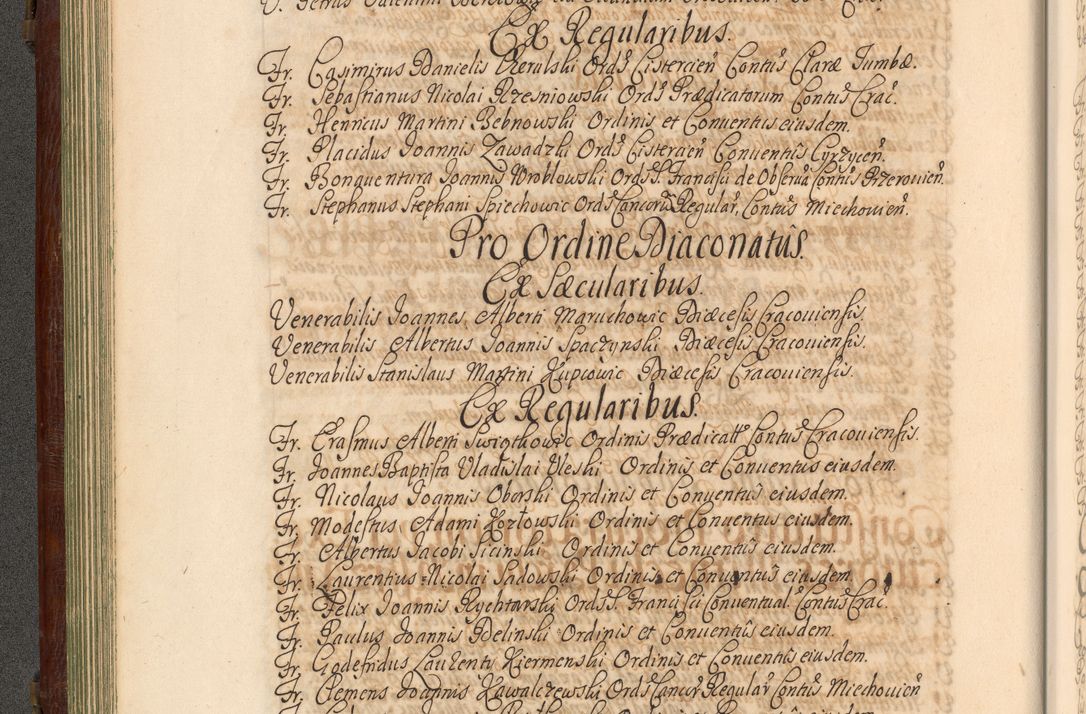 Ex Regularibus.
Fr. Casimirus Danielis Czerulski Ord's Cistercien Contus Claræ Tumbæ.
Fr. Sebastianus Nicolai Rzesniowski Ord's Prædicatorum Contus Crac.
Fr. Henricus Martini Bebnowski Ordinis et Conuentus eiusdem.
Fr. Placidus Joannis Zawadzki Ord's Cistercien Conuentus Cyrzycen.
Fr. Bonauentura Joannis Wroblowski Ord's S. Francisci de Obserua Contus Przerouien.
Fr. Stephanus Stephani Spiechowic Ord's Cancoru Regular, Contus Miechouien.
Pro Ordine Diaconatûs.
Ex Sæcularibus.
Venerabilis Joannes Alberti Maruchowic Diæcesis Cracouiensis.
Venerabilis Albertus Joannis Spaczynski Diæcesis Cracouiensis.
Venerabilis Stanislaus Martini Kupcowic Diæcesis Cracouiensis.
Ex Regularibus.
Fr. Erasmus Alberti Swiątkowic Ordinis Prædicatt Contus Cracouiensis.
Fr. Joannes Baptista Vladislai Uleski Ordinis et Conuentus eiusdem.
Fr. Nicolaus Joannis Oborski Ordinis et Conuentus eiusdem.
Fr. Modestus Adami Kozłowski Ordinis et Conuentus eiusdem.
Fr. Albertus Jacobi Sicinski Ordinis et Conuentus eiusdem.
Fr. Laurentius Nicolai Sadowski Ordinis et Conuentus eiusdem.
Fr. Felix Joannis Rychtarski Ord's S. Francisci Conuentual. Contus Crac.
Fr. Paulus Joannis Delinski Ordinis et Conuentus eiusdem.
Fr. Godefridus Laurenti Kiermenski Ordinis et Conuentus eiusdem.
Fr. Clemens Joannis Kawalczewski Ord's Cancor Regular Contus Miechouien